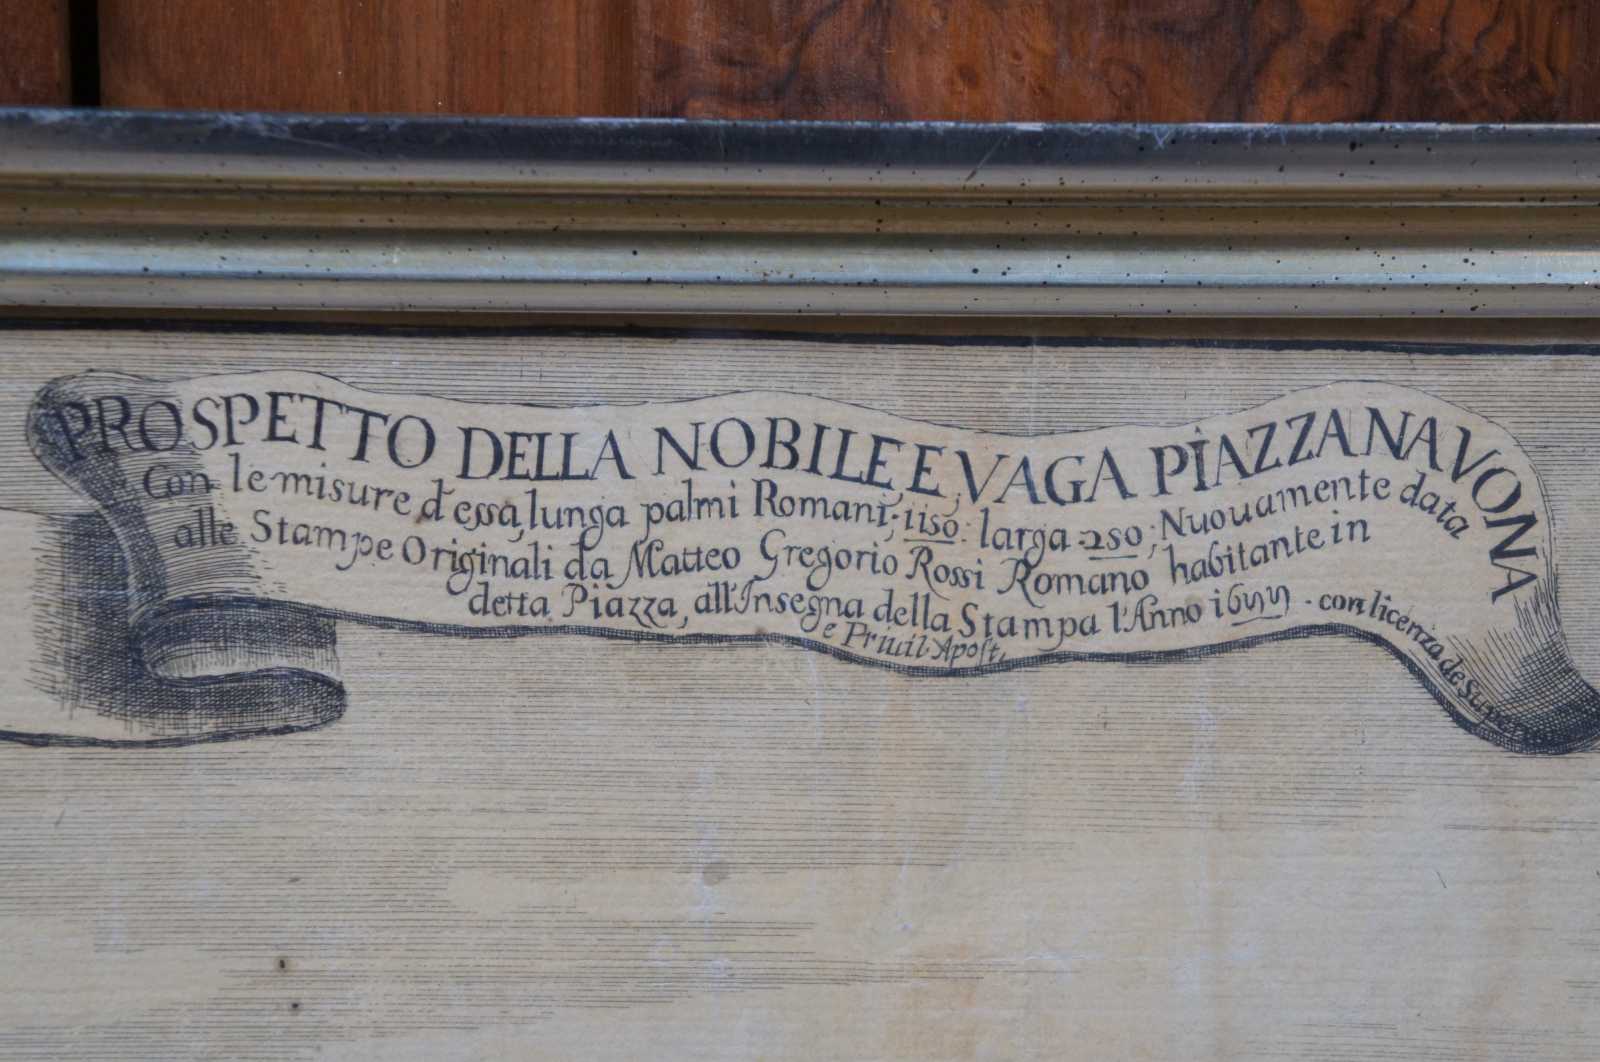 PROSPETTO DELLA NOBILE, E, VAGA PIAZZA NAVONA
Con le misure d'essa, lunga palmi Romani; 1150: larga 250; Nuouamente data
alle Stampe Originali da Matteo Gregorio Rossi Romano habitante in
detta Piazza, all'Insegna della Stampa l'Anno 1655 . con licenza de Super.
e Priuil Apost.